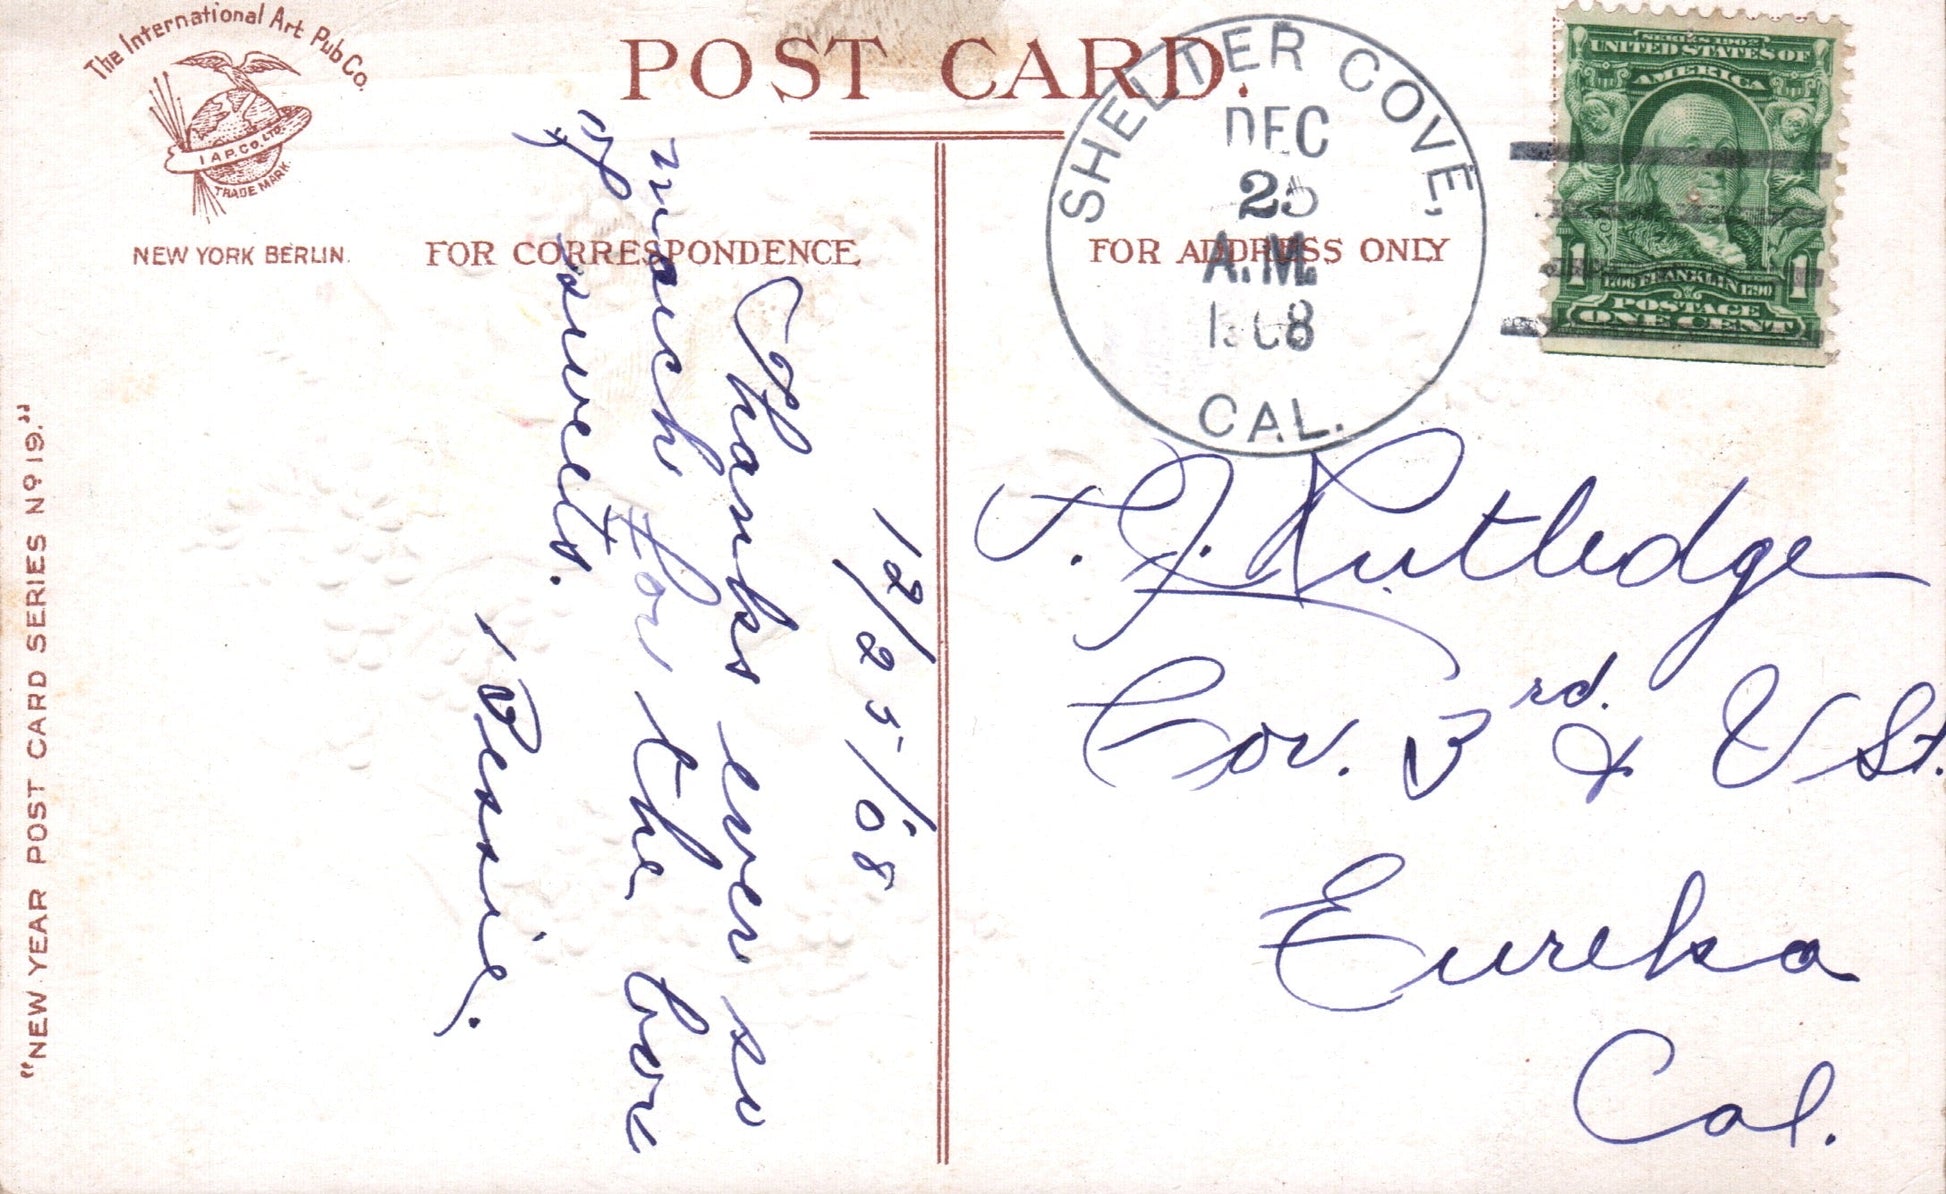 The International Art Pub Co.
I.A.P.CO.LTD.
TRADE MARK
NEW YORK BERLIN.
POST CARD.
FOR CORRESPONDENCE
FOR ADDRESS ONLY
SHELTER COVE,
DEC
25
A.M.
1908
CAL.
SERIES 1902
UNITED STATES OF
AMERICA
1 1706 FRANKLIN 1790 1
POSTAGE
ONE CENT
"NEW YEAR POST CARD SERIES Nº 19."
12/25/08
Thanks ever so
much for the box
of sweets.
Bessie.
T. J. Rutledge
Cor. 3rd. & V St.
Eureka
Cal.